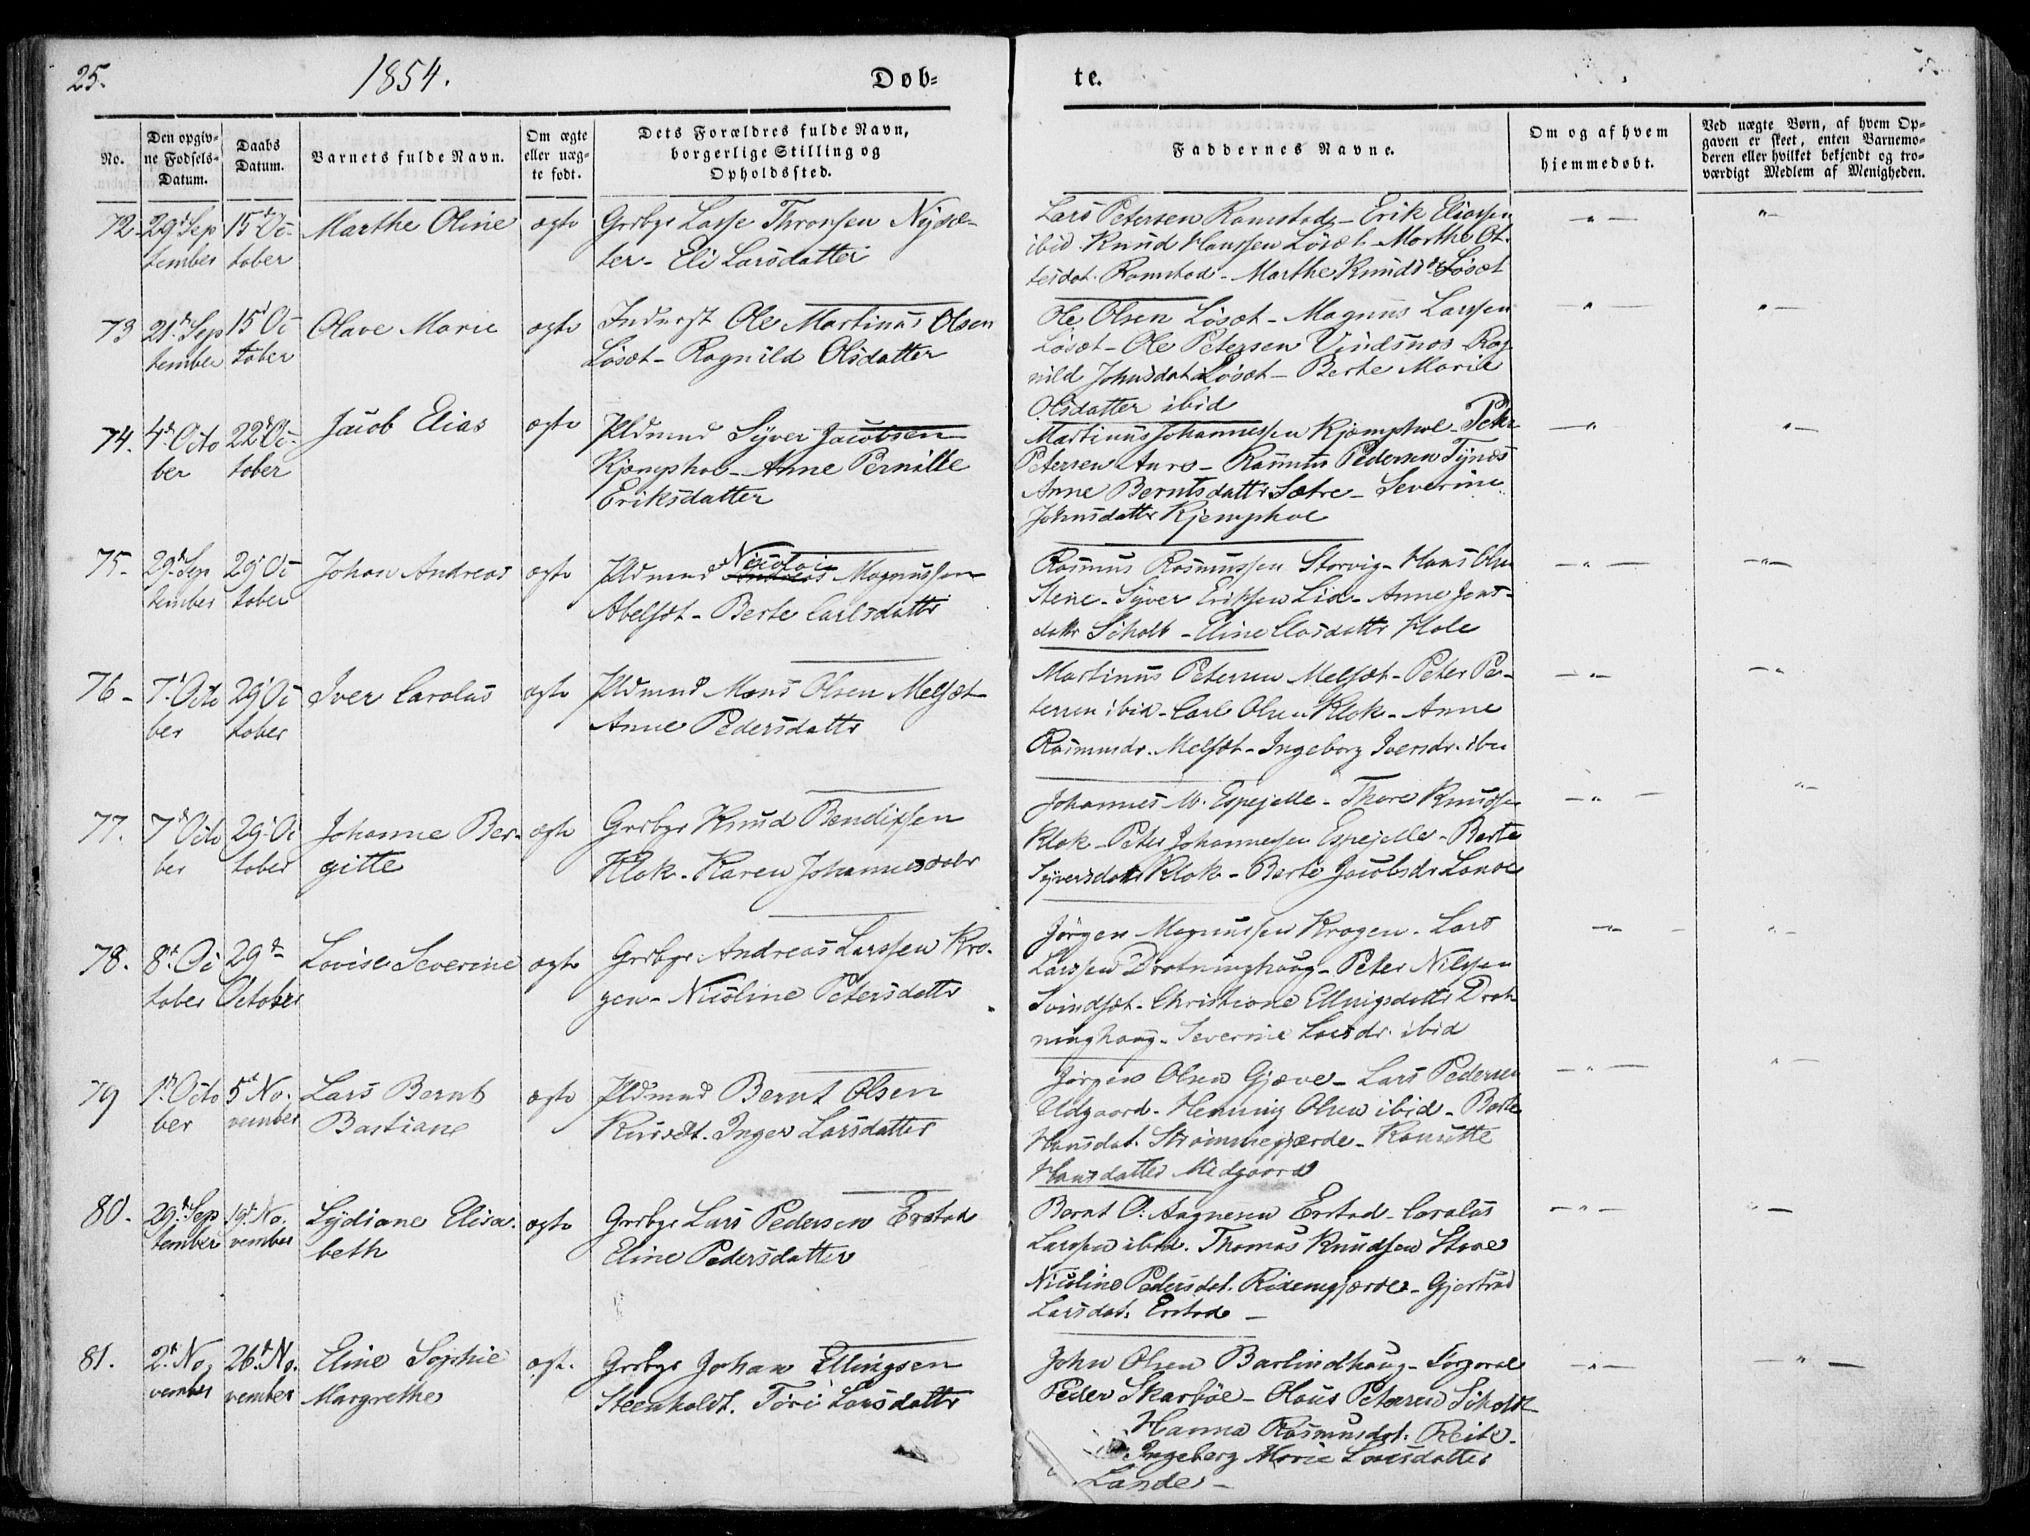 25.
1854.
Døb-
te.
No.
Den opgiv-
ne Fødsels-
Datum.
Daabs
Datum.
Barnets fulde Navn.
Om ægte
eller uæg-
te født.
Dets Forældres fulde Navn,
borgerlige Stilling og
Opholdssted.
Faddernes Navne.
Om og af hvem
hjemmedøbt.
Ved uægte Børn, af hvem Op-
gaven er skeet, enten Barnemo-
deren eller hvilket bekjendt og tro-
værdigt Medlem af Menigheden.
72 29d Sep 15d Oc- Marthe Oline ægte Grdbgr Lasse Thronsen Nysæ-
tember tober ter - Eli Larsdatter
Lars Petersen Ramstad - Erik Eliassen
ibid Knud Hanssen Løset - Marthe Ot-
tersdat. Ramstad - Marthe Knudsdr Løset
73 21d Sep 15d Oc Olave Marie ægte Inderst Ole Martinus Olsen
tember tober Løset - Ragnild Olsdatter
Ole Olsen Løset - Magnus Larssen
Løset - Ole Petersen Vindsnes - Rag
nild Johnsdat Løset - Berte Maria
Olsdatter ibid
74. 4d Octo 22d Oc- Jacob Elias ægte Pldmnd Syver Jacobsen
ber tober Kjemphol - Anne Pernille
Eriksdatter
Martinus Johannessen Kjemphol - Peter
Petersen Aure - Rasmus Pedersen Tynes
Anne Berntsdattr Sætre - Severine
Johnsdattr Kjemphol
75- 29d Sep 29d Oc Johan Andreas ægte Pldmnd Nicolai Magnussen
tember tober Abelset - Berte Carlsdattr
Rasmus Rasmussen Storvig - Hans Olsen
Stene - Syver Erikssen Lid - Anne Jens-
dattr Søholt - Eline Clasdattr Hole
76- 7d Octo 29d Oc Iver Carolus ægte Pldmnd Mons Olsen Melset
ber tober Anne Pedersdattr
Martinus Petersen Melset - Peter Pe-
tersen ibid - Carl Olsen Klok - Anne
Rasmusdr. Melset - Ingeborg Iversdr. ibid
77. 7d Octo 29d Oc Johanne Ber- ægte Grdbgr Knud Bendixsen
ber tober gitte Klok - Karen Johannesdatr
Johannes M. Espejelle - Thore Knudsen
Klok - Peter Johannessen Espejelle - Berte
Syversdatr Klok - Berte Jacobsdr Lande
78. 8d Oc 29d Lovise Severine ægte Grdbgr Andreas Larssen Kro-
tober October gen - Nicoline Petersdattr
Jørgen Magnussen Krogen - Lars
Larssen Drotninghaug - Peter Nilssen
Svindset - Christiane Ellingsdattr Drot
ninghaug - Severine Larsdr. ibid
79 1d Octo 5d No- Lars Bernt ægte Pldmnd Bernt Olsen
ber vember Bastian Kursæt. Inger Larsdatter
Jørgen Olsen Gjæve - Lars Pedersen
Udgaard - Henning Olsen ibid - Berte
Hansdat. Strømmegjærde - Ranette
Hansdatter Midgaard
80. 29d Sep 19d No- Lydiane Elisa- ægte Grdbgr Lars Pedersen Erstad
tember vember beth Eline Pedersdatter
Bernt O. Aagnesen Erstad - Carolus
Larssen ibid. Thomas Knudsen Stave
Nicoline Pedersdat. Ridemgjærde - Gjertrud
Larsdat. Erstad -
81. 2d No- 26d No- Eline Sophie ægt. Grdbgr Johan Ellingsen
vember vember Margrethe Steenholdt. Tøri Larsdattr
John Olsen Barlindhaug - Corporal
Peder Skarbøe - Olaus Petersen Søholt
Hanna Rasmusdat. Reite -
Ingeborg Marie Larsdatter
Lande -